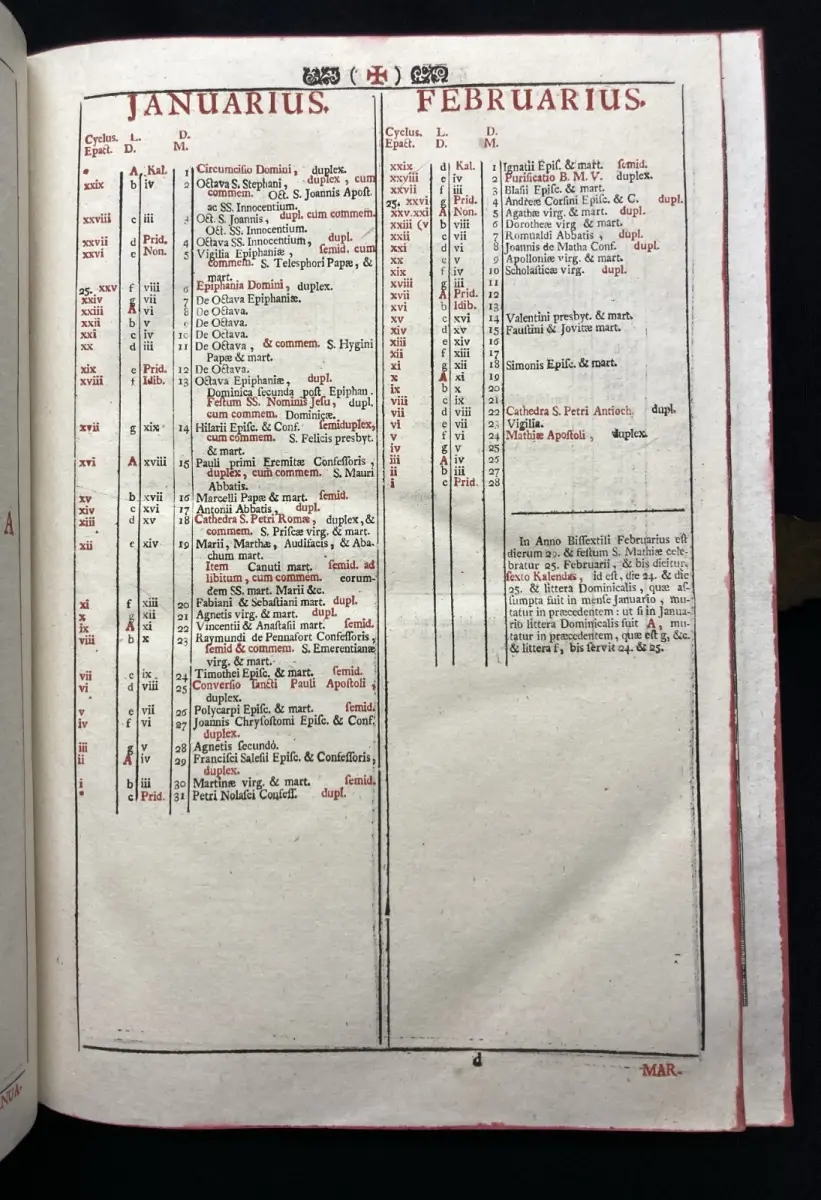 ( ✠ )
JANUARIUS.
Cyclus. L. D.
Epact. D. M.
* A Kal. 1 Circumcisio Domini, duplex.
xxix b iv 2 Octava S. Stephani, duplex, cum
commem. Oct. S. Joannis Apost.
ac SS. Innocentium.
xxviii c iii 3 Oct. S. Joannis, dupl. cum commem.
Oct. SS. Innocentium.
xxvii d Prid. 4 Octava SS. Innocentium, dupl.
xxvi e Non. 5 Vigilia Epiphaniæ, semid. cum
commem. S. Telesphori Papæ, &
mart.
25. xxv f viii 6 Epiphania Domini, duplex.
xxiv g vii 7 De Octava Epiphaniæ.
xxiii A vi 8 De Octava.
xxii b v 9 De Octava.
xxi c iv 10 De Octava.
xx d iii 11 De Octava, & commem. S. Hygini
Papæ & mart.
xix e Prid. 12 De Octava.
xviii f Idib. 13 Octava Epiphaniæ, dupl.
Dominica secunda post Epiphan.
Festum SS. Nominis Jesu, dupl.
cum commem. Dominicæ.
xvii g xix 14 Hilarii Episc. & Conf. semiduplex,
cum commem. S. Felicis presbyt.
& mart.
xvi A xviii 15 Pauli primi Eremitæ Confessoris,
duplex, cum commem. S. Mauri
Abbatis.
xv b xvii 16 Marcelli Papæ & mart. semid.
xiv c xvi 17 Antonii Abbatis, dupl.
xiii d xv 18 Cathedra S. Petri Romæ, duplex, &
commem. S. Priscæ virg. & mart.
xii e xiv 19 Marii, Marthæ, Audifacis, & Aba-
chum mart.
Item Canuti mart. semid. ad
libitum, cum commem. eorum-
dem SS. mart. Marii &c.
xi f xiii 20 Fabiani & Sebastiani mart. dupl.
x g xii 21 Agnetis virg. & mart. dupl.
ix A xi 22 Vincentii & Anastasii mart. semid.
viii b x 23 Raymundi de Pennafort Confessoris,
semid & commem. S. Emerentianæ
virg. & mart.
vii c ix 24 Timothei Episc. & mart. semid.
vi d viii 25 Conversio Sancti Pauli Apostoli,
duplex.
v e vii 26 Polycarpi Episc. & mart. semid.
iv f vi 27 Joannis Chrysostomi Episc. & Conf.
duplex.
iii g v 28 Agnetis secundò.
ii A iv 29 Francisci Salesii Episc. & Confessoris,
duplex.
i b iii 30 Martinæ virg. & mart. semid.
* c Prid. 31 Petri Nolasci Confess. dupl.
FEBRUARIUS.
Cyclus. L. D.
Epact. D. M.
xxix d Kal. 1 Ignatii Epis. & mart. semid.
xxviii e iv 2 Purificatio B. M. V. duplex.
xxvii f iii 3 Blasii Episc. & mart.
25. xxvi g Prid. 4 Andreæ Corsini Episc. & C. dupl.
xxv.xxi A Non. 5 Agathæ virg. & mart. dupl.
xxiii (v b viii 6 Dorotheæ virg & mart.
xxii c vii 7 Romualdi Abbatis, dupl.
xxi d vi 8 Joannis de Matha Conf. dupl.
xx e v 9 Apolloniæ virg. & mart.
xix f iv 10 Scholasticæ virg. dupl.
xviii g iii 11
xvii A Prid. 12
xvi b Idib. 13
xv c xvi 14 Valentini presbyt. & mart.
xiv d xv 15 Faustini & Jovitæ mart.
xiii e xiv 16
xii f xiii 17
xi g xii 18 Simonis Episc. & mart.
x A xi 19
ix b x 20
viii c ix 21
vii d viii 22 Cathedra S. Petri Antioch. dupl.
vi e vii 23 Vigilia.
v f vi 24 Mathiæ Apostoli, duplex.
iv g v 25
iii A iv 26
ii b iii 27
i c Prid. 28
In Anno Bissextili Februarius est
dierum 29. & festum S. Mathiæ cele-
bratur 25. Februarii, & bis dicitur,
sexto Kalendas, id est, die 24. & die
25. & littera Dominicalis, quæ as-
sumpta fuit in mense Januario, mu-
tatur in præcedentem: ut si in Janua-
rio littera Dominicalis fuit A, mu-
tatur in præcedentem, quæ est g, &c.
& littera f, bis servit 24. & 25.
d
MAR-
A
NUA-